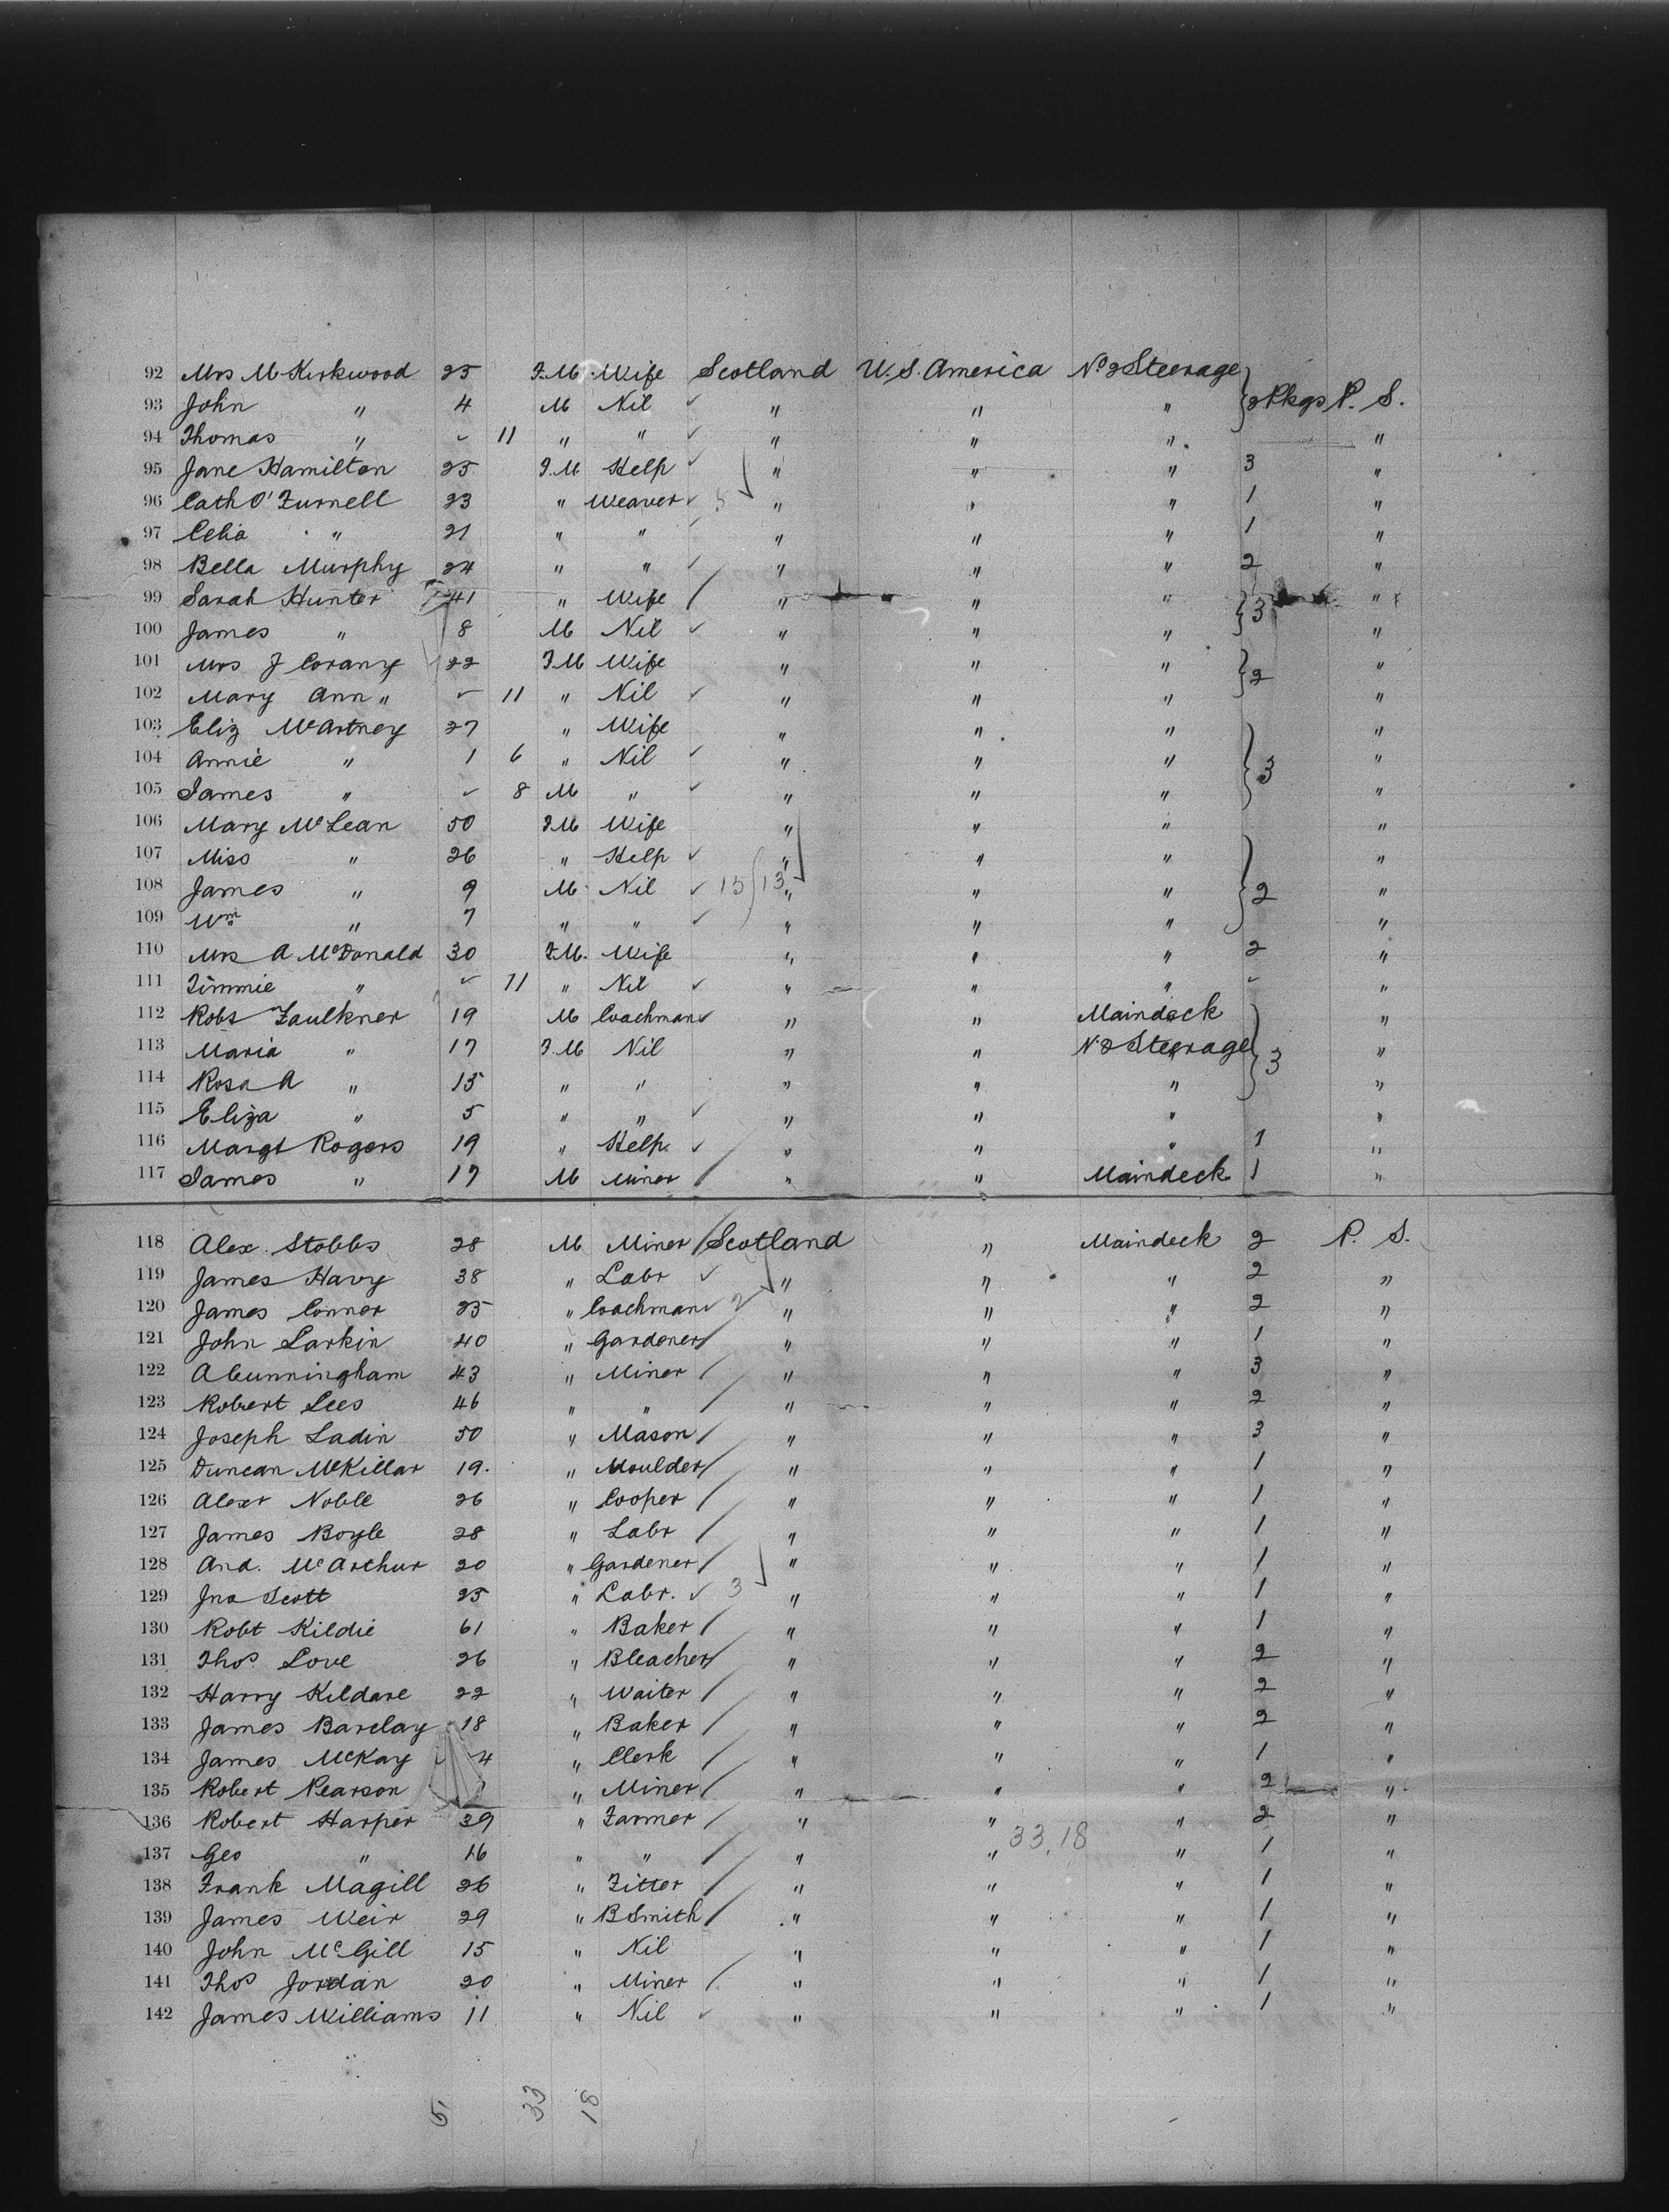 92 Mrs M Kirkwood 25 F.M. Wife Scotland U.S. America No 2 Steerage
93 John " 4 M Nil " " " 2 Pkgs P. S.
94 Thomas " ✓ 11 " " " " " "
95 Jane Hamilton 25 F.M Help " " " 3 "
96 Cath O'Furnell 23 " Weaver " " " 1 "
97 Celia " 21 " " " " " 1 "
98 Bella Murphy 24 " " " " " 2 "
99 Sarah Hunter 41 " Wife " " " 3 "
100 James " 8 M Nil " " " "
101 Mrs J Corany 22 F.M Wife " " " 2 "
102 Mary Ann " ✓ 11 " Nil " " " "
103 Eliz McArtney 27 " Wife " " " "
104 Annie " 1 6 " Nil " " " 3 "
105 James " ✓ 8 M " " " " "
106 Mary McLean 50 F.M Wife " " " "
107 Miss " 26 " Help " " " "
108 James " 9 M Nil 15 13 " " " 2 "
109 Wm " 7 " " " " " "
110 Mrs A McDonald 30 F.M. Wife " " " 2 "
111 Jimmie " ✓ 11 " Nil " " " ✓ "
112 Robt Faulkner 19 M Coachman " " Maindeck "
113 Maria " 17 F.M Nil " " N 2 Steerage 3 "
114 Rosa A " 15 " " " " " "
115 Eliza " 5 " " " " " "
116 Margt Rogers 19 " Help " " " 1 "
117 James " 17 M Miner " " Maindeck 1 "
118 Alex Stobbs 28 M Miner Scotland " Maindeck 2 P. S.
119 James Havy 38 " Labr " " " 2 "
120 James Conner 25 " Coachman 2 " " " 2 "
121 John Larkin 40 " Gardener " " " 1 "
122 A Cunningham 43 " Miner " " " 3 "
123 Robert Lees 46 " " " " " 2 "
124 Joseph Ladin 50 " Mason " " " 3 "
125 Duncan McKillar 19. " Moulder " " " 1 "
126 Alexr Noble 26 " Cooper " " " 1 "
127 James Boyle 28 " Labr " " " 1 "
128 And. McArthur 20 " Gardener " " " 1 "
129 Jno Scott 25 " Labr. 3 " " " 1 "
130 Robt Kildie 61 " Baker " " " 1 "
131 Thos Love 26 " Bleacher " " " 2 "
132 Harry Kildare 22 " Waiter " " " 2 "
133 James Barclay 18 " Baker " " " 2 "
134 James McKay 4 " Clerk " " " 1 "
135 Robert Pearson " Miner " " " 2 "
136 Robert Harper 39 " Farmer " " " 2 "
137 Geo " 16 " " " " 33.18 " 1 "
138 Frank Magill 26 " Fitter " " " 1 "
139 James Weir 29 " BSmith " " " 1 "
140 John McGill 15 " Nil " " " 1 "
141 Thos Jordan 20 " Miner " " " 1 "
142 James Williams 11 " Nil " " " 1 "
33 18